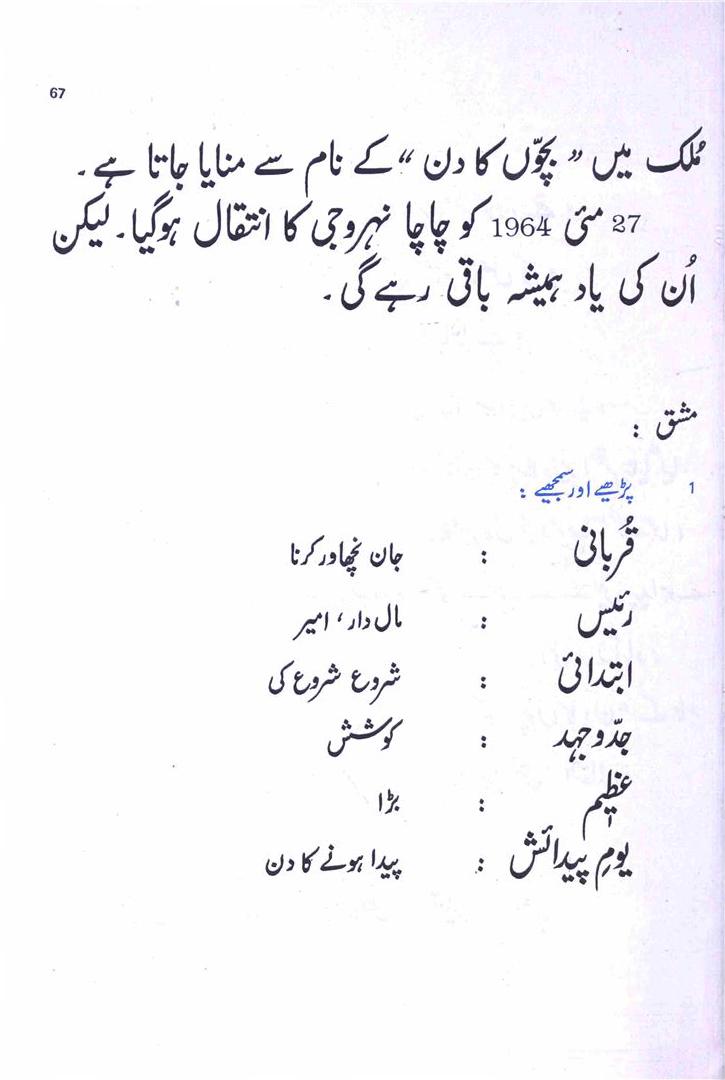 67
مُلک میں ”بچّوں کا دن“ کے نام سے منایا جاتا ہے۔
27 مئی 1964 کو چاچا نہرو جی کا انتقال ہوگیا۔ لیکن
اُن کی یاد ہمیشہ باقی رہے گی۔
مشق :
1 پڑھیے اور سمجھیے :
قُربانی : جان نچھاور کرنا
رئیس : مال دار، امیر
ابتدائی : شروع شروع کی
جدّوجہد : کوشش
عظیم : بڑا
یومِ پیدائش : پیدا ہونے کا دن